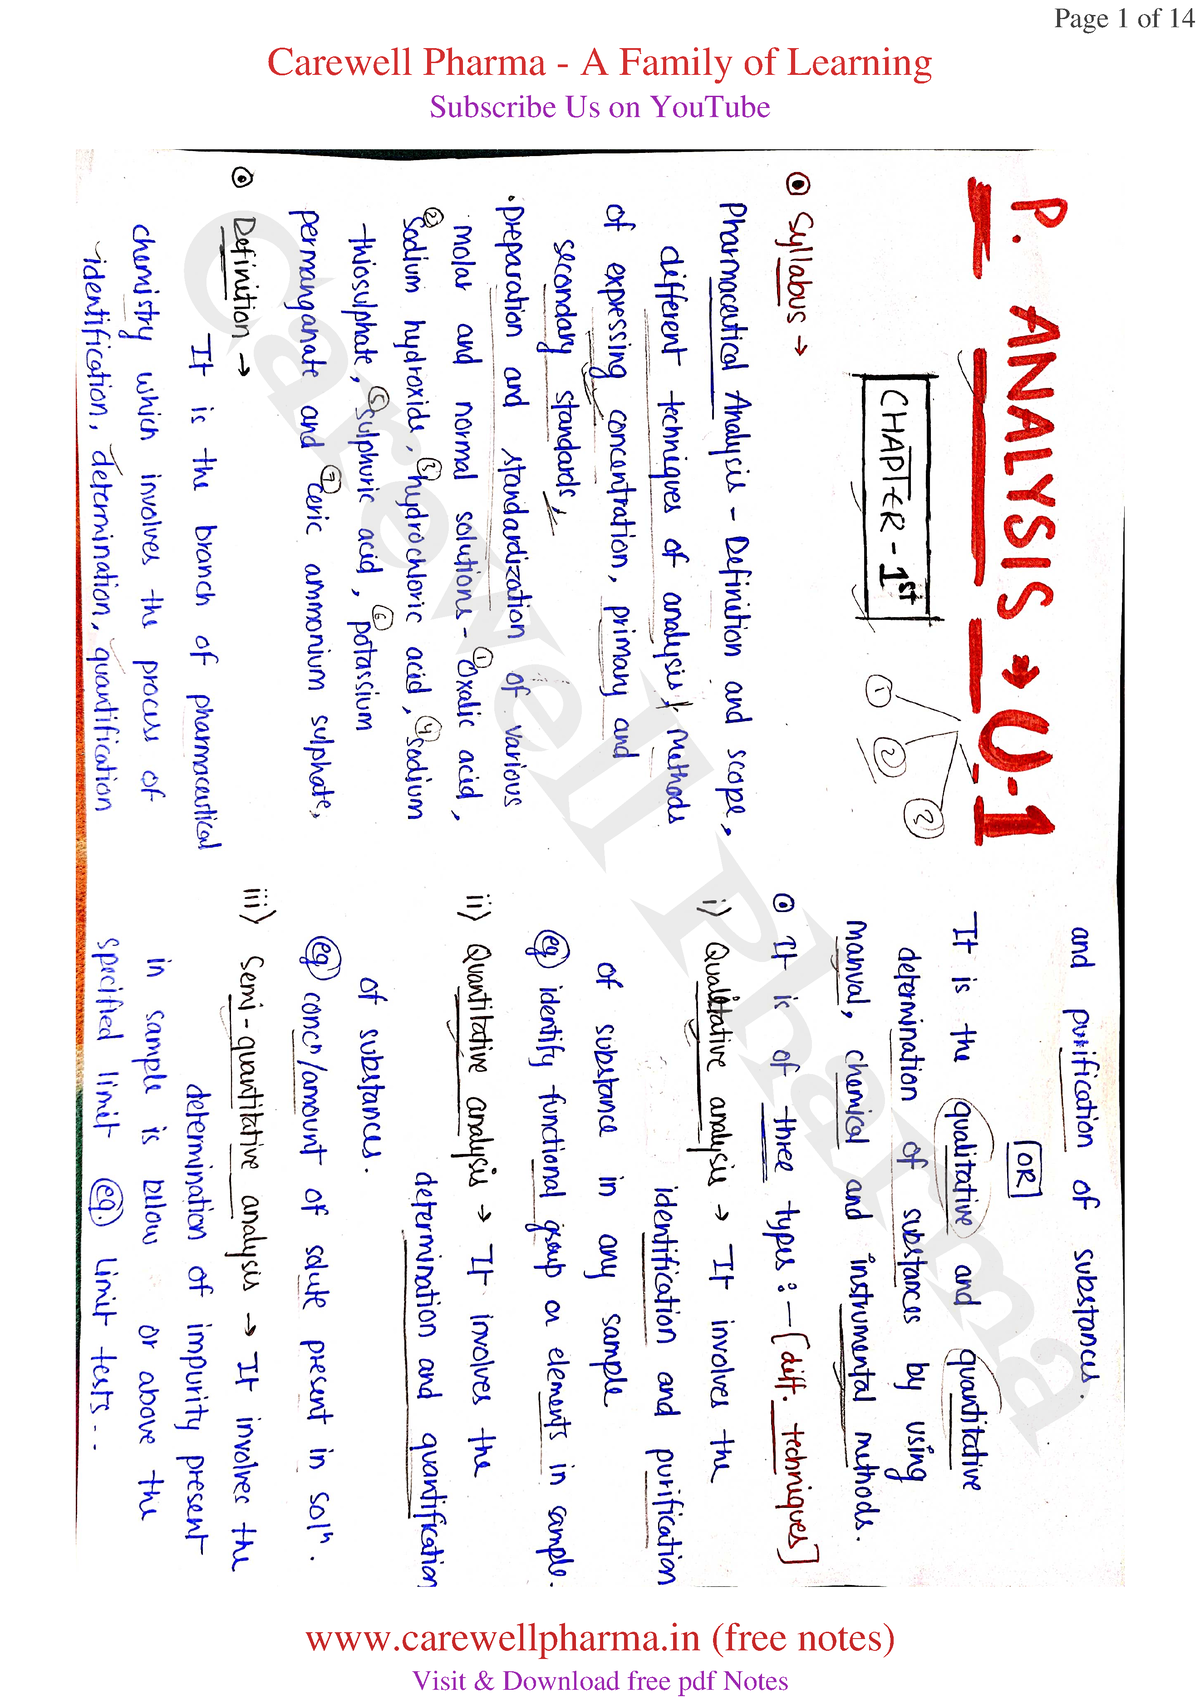 Page 1 of 14
Carewell Pharma - A Family of Learning
Subscribe Us on YouTube
P. ANALYSIS → U-1
CHAPTER - 1st
1
2
Syllabus →
Pharmaceutical Analysis - Definition and scope,
different techniques of analysis, Methods
of expressing concentration, primary and
secondary standards,
• Preparation and standardization of various
molar and normal solutions - ① Oxalic acid,
② Sodium hydroxide, ③ hydrochloric acid, ④ sodium
thiosulphate, ⑤ sulphuric acid, ⑥ potassium
permanganate and ⑦ ceric ammonium sulphate,
Definition →
It is the branch of pharmaceutical
chemistry which involves the process of
identification, determination, quantification
and purification of substances.
OR
It is the qualitative and quantitative
determination of substances by using
manual, chemical and instrumental methods.
It is of three types :- [diff. techniques]
i) Qualitative analysis → It involves the
identification and purification
of substance in any sample
eg identify functional group or elements in sample.
ii) Quantitative analysis → It involves the
determination and quantification
of substances.
eg concn/amount of solute present in soln.
iii) Semi-quantitative analysis → It involves the
determination of impurity present
in sample is below or above the
specified limit eg. limit tests...
Carewell Pharma
www.carewellpharma.in (free notes)
Visit & Download free pdf Notes